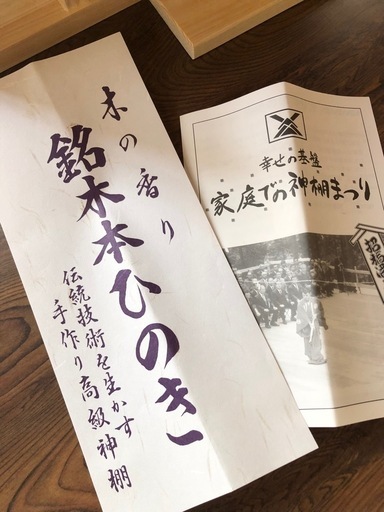 木の香り
銘木本ひのき
伝統技術を生かす
手作り高級神棚
幸せの基盤
家庭での神棚まつり
招福